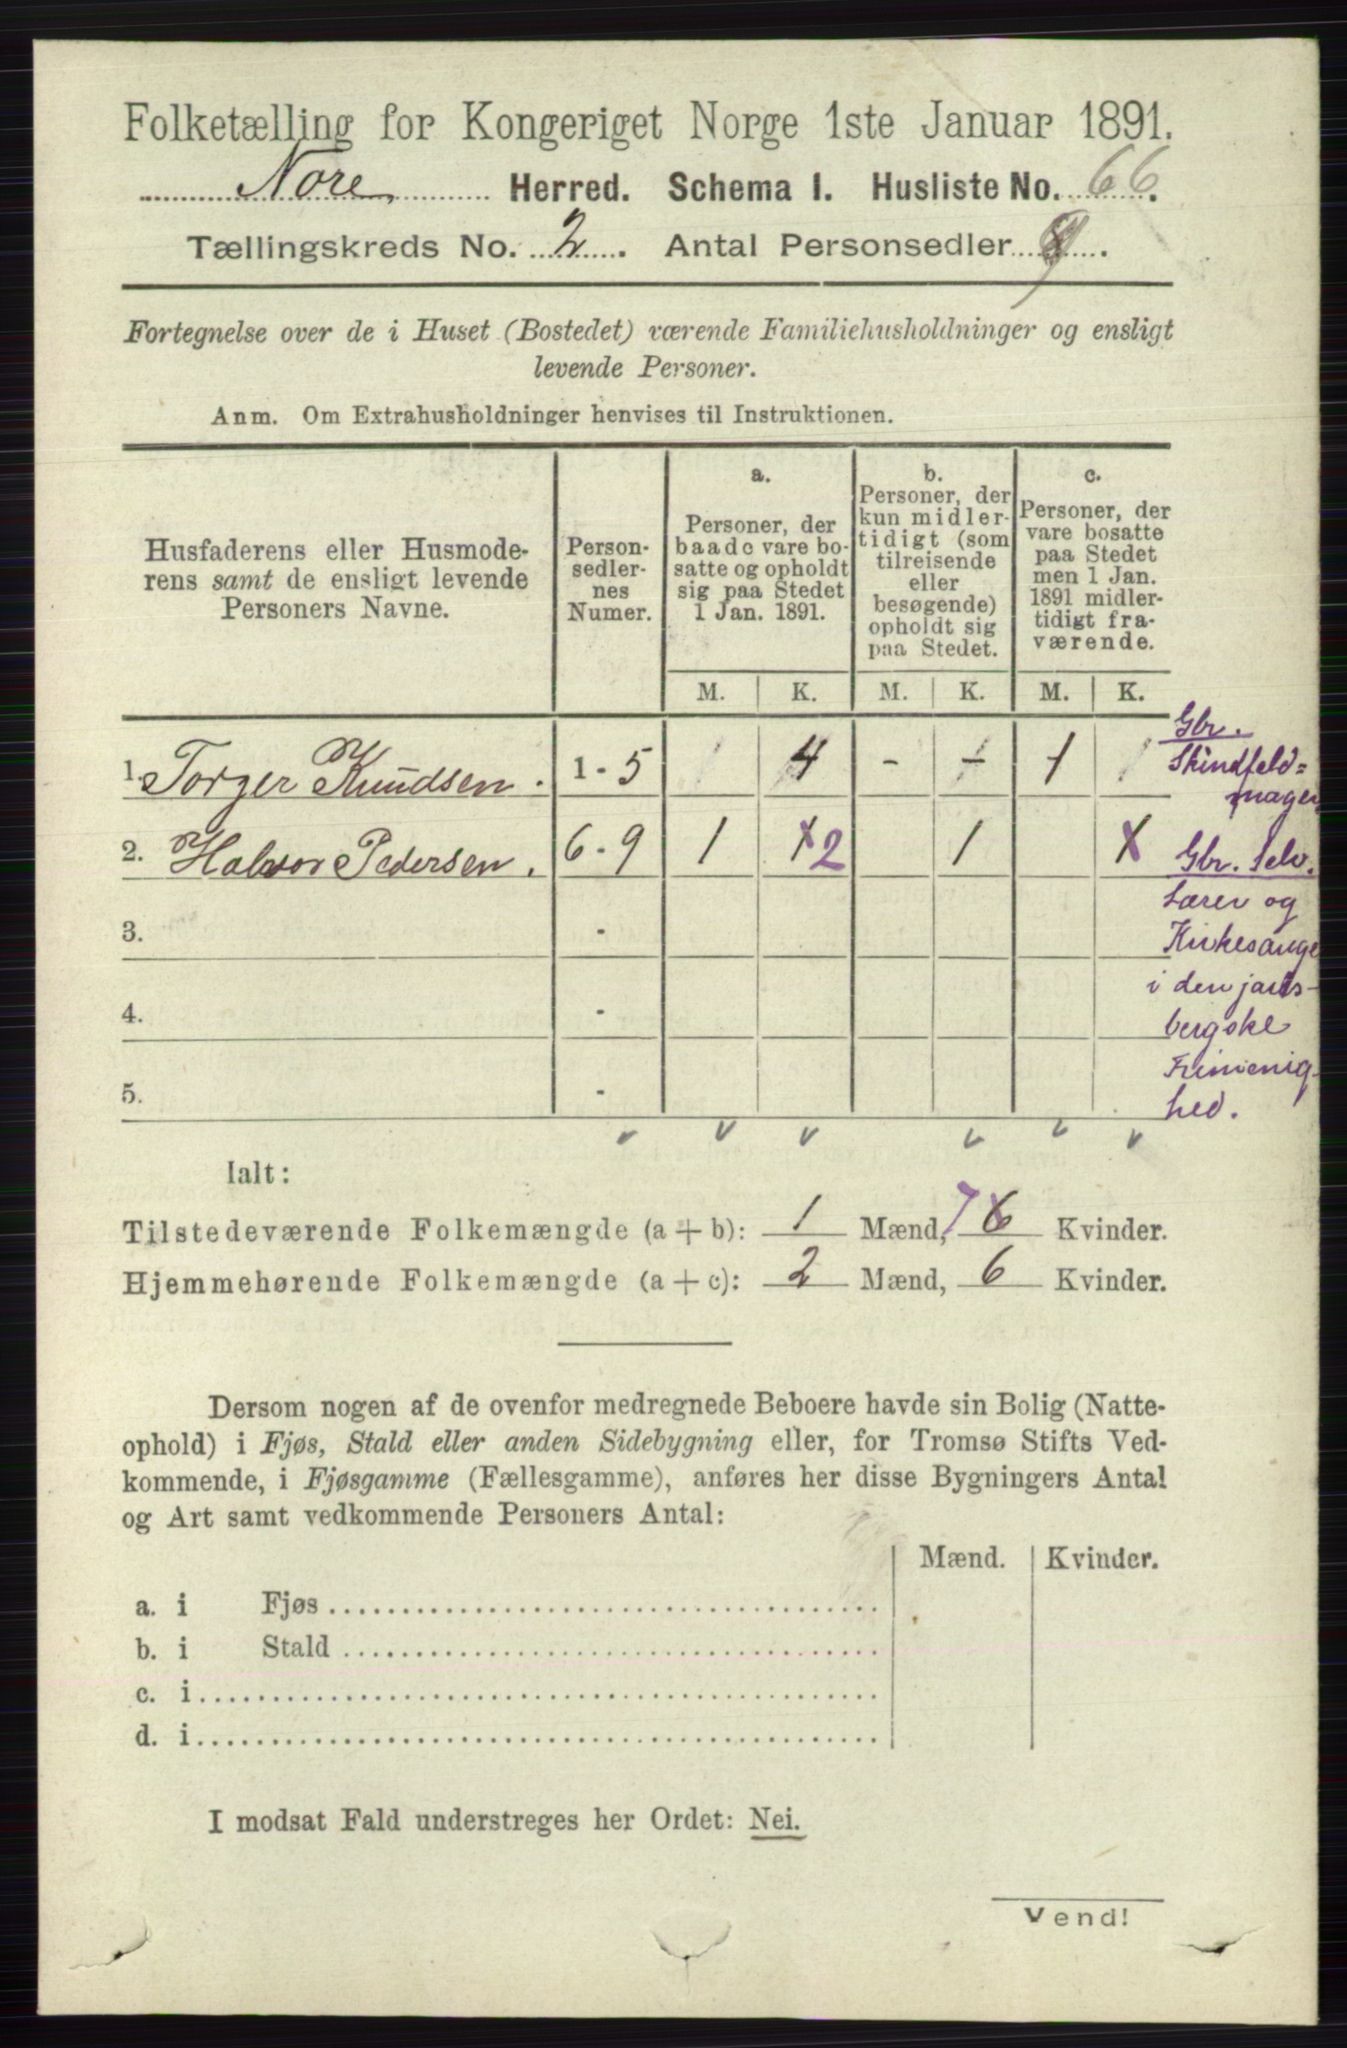 Folketælling for Kongeriget Norge 1ste Januar 1891.
Nore Herred. Schema I. Husliste No. 66.
Tællingskreds No. 2. Antal Personsedler 9.
Fortegnelse over de i Huset (Bostedet) værende Familiehusholdninger og ensligt
levende Personer.
Anm. Om Extrahusholdninger henvises til Instruktionen.
Husfaderens eller Husmode-
rens samt de ensligt levende
Personers Navne.
Person-
sedler-
nes
Numer.
a.
Personer, der
baade vare bo-
satte og opholdt
sig paa Stedet
1 Jan. 1891.
b.
Personer, der
kun midler-
tidigt (som
tilreisende
eller
besøgende)
opholdt sig
paa Stedet.
c.
Personer, der
vare bosatte
paa Stedet
men 1 Jan.
1891 midler-
tidigt fra-
værende.
M. K. M. K. M. K.
1. Torger Knudsen. 1-5 4 - - 1
Gbr.
Skindfeld=
mager
2. Halvor Pedersen. 6-9 1 2 1
Gbr. Selv.
Lærer og
Kirkesange
i den jarls-
bergske
Frimenig-
hed.
3. -
4. -
5. -
Ialt:
Tilstedeværende Folkemængde (a + b): 1 Mænd, 7 6 Kvinder.
Hjemmehørende Folkemængde (a + c): 2 Mænd, 6 Kvinder.
Dersom nogen af de ovenfor medregnede Beboere havde sin Bolig (Natte-
ophold) i Fjøs, Stald eller anden Sidebygning eller, for Tromsø Stifts Ved-
kommende, i Fjøsgamme (Fællesgamme), anføres her disse Bygningers Antal
og Art samt vedkommende Personers Antal:
Mænd. Kvinder.
a. i Fjøs
b. i Stald
c. i
d. i
I modsat Fald understreges her Ordet: Nei.
Vend!